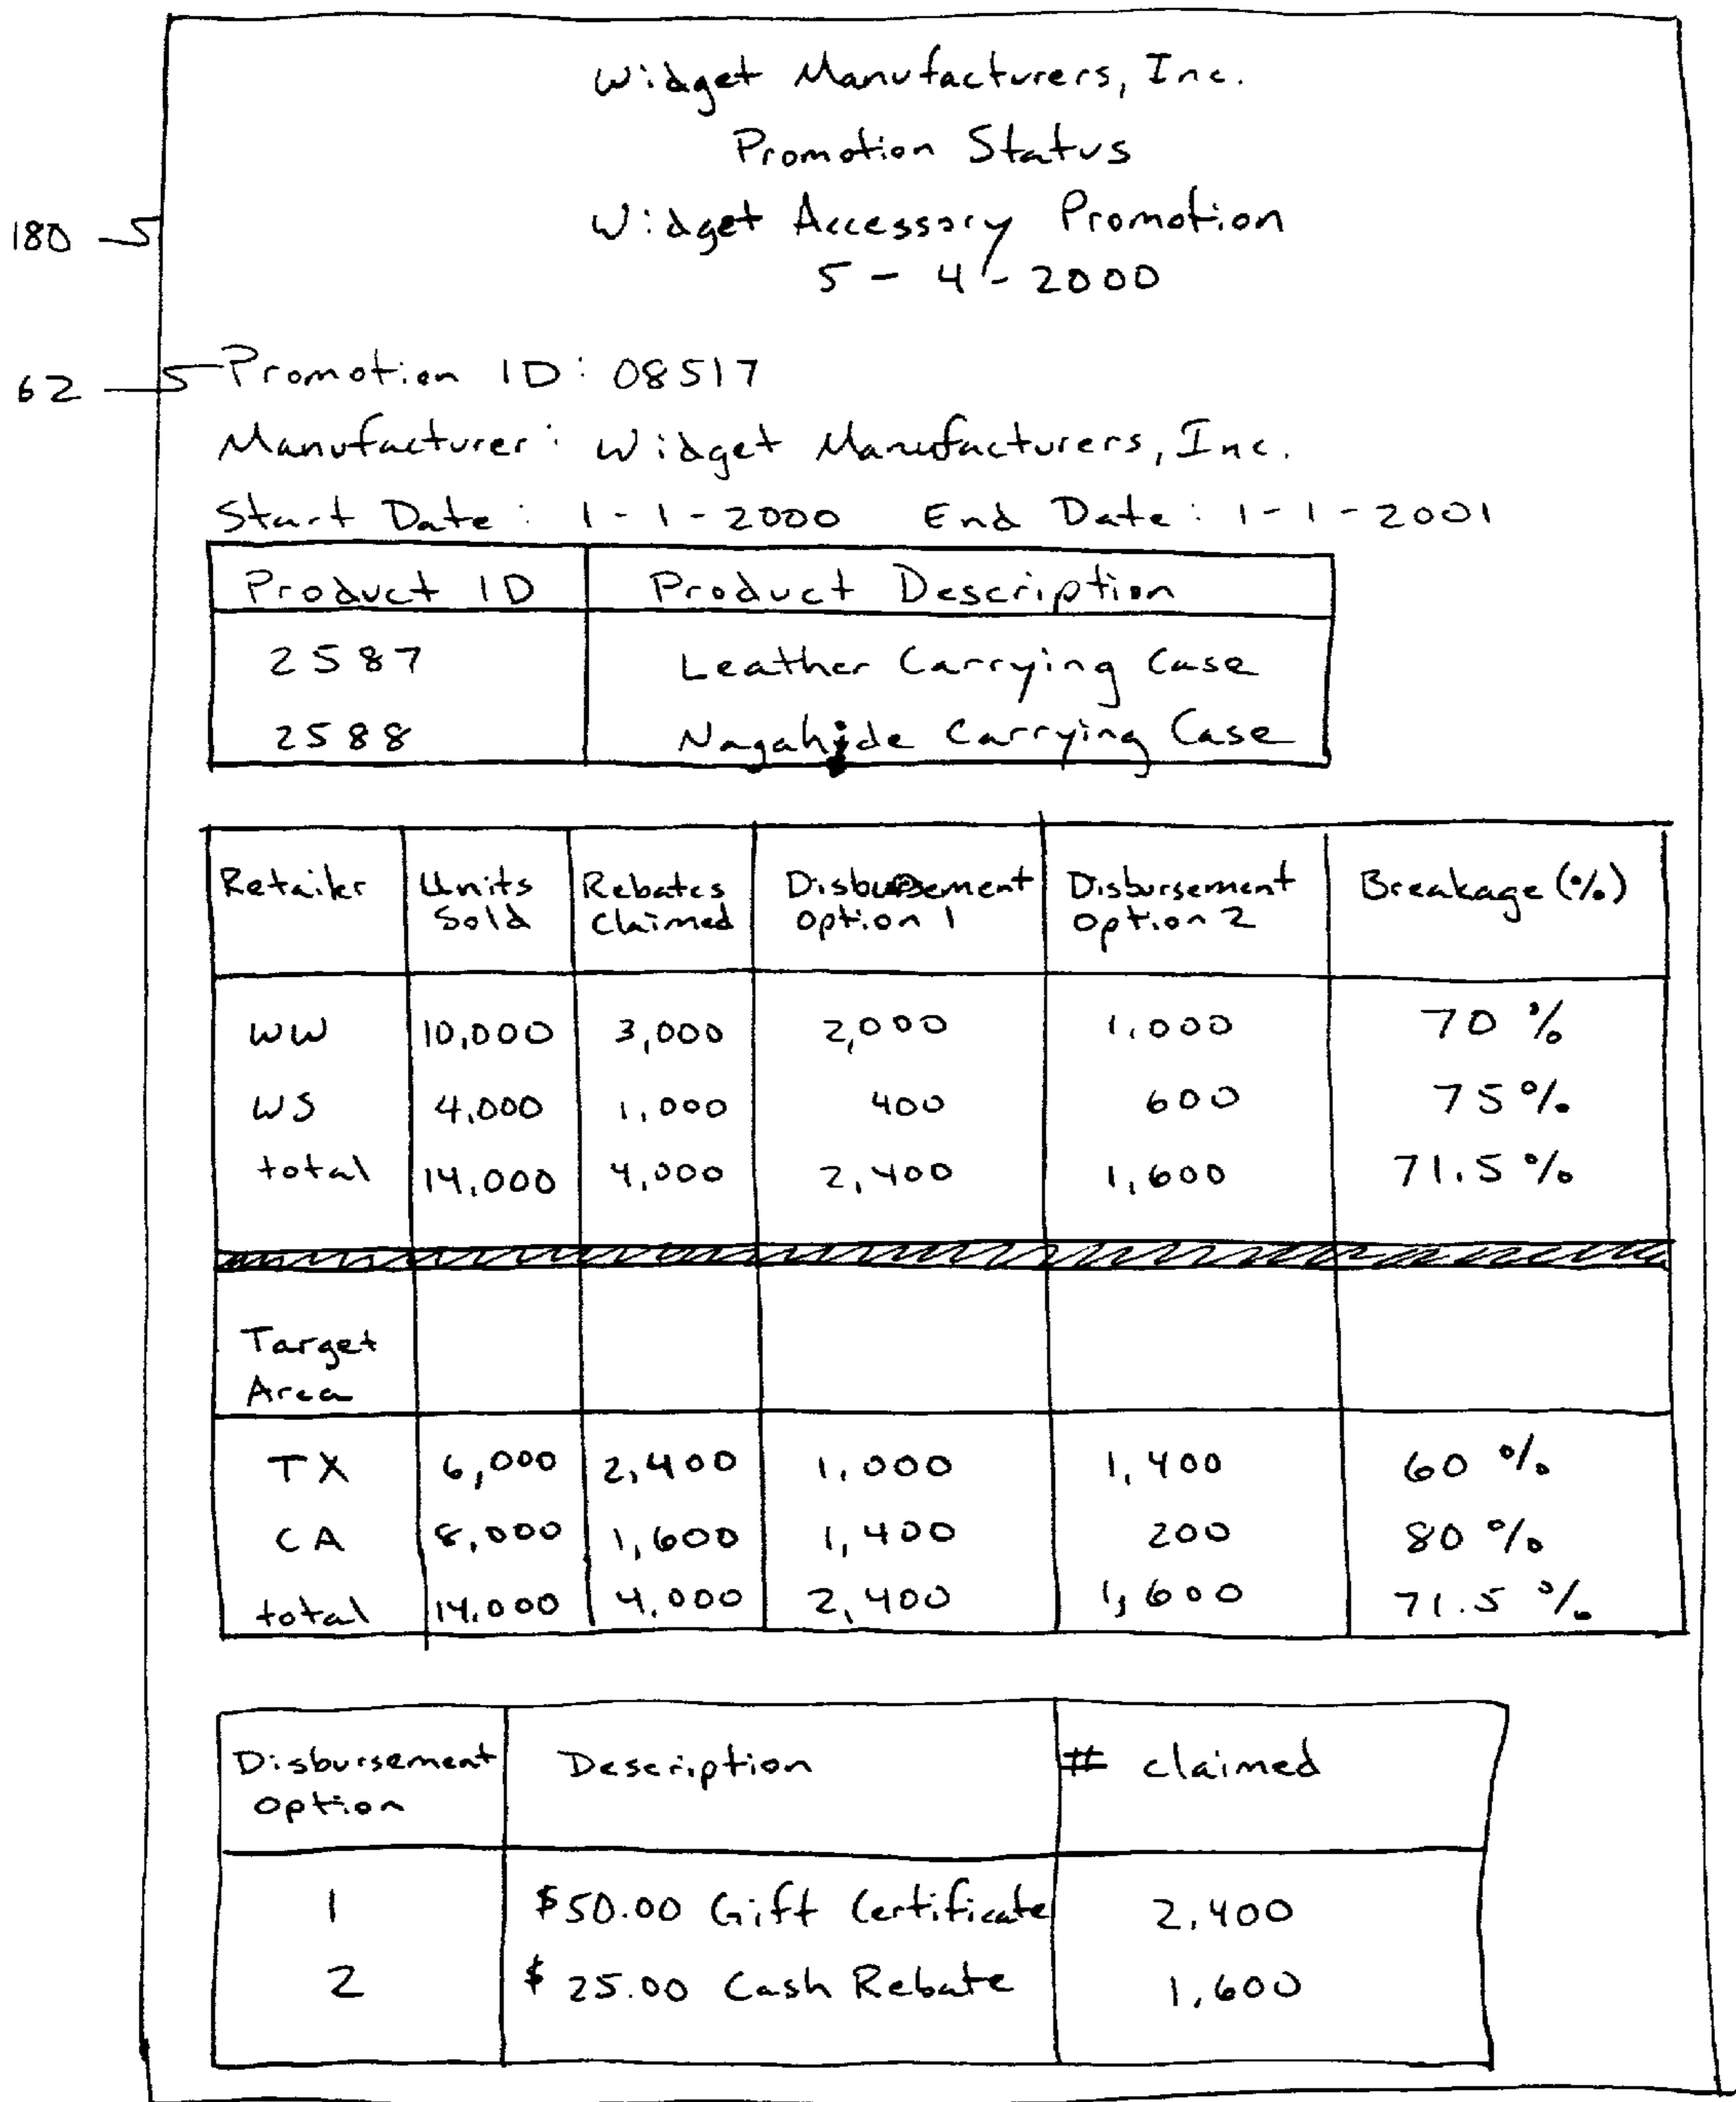 Widget Manufacturers, Inc.
Promotion Status
Widget Accessory Promotion
5 - 4 - 2000
180
62
Promotion ID: 08517
Manufacturer: Widget Manufacturers, Inc.
Start Date: 1-1-2000 End Date: 1-1-2001
Product ID Product Description
2587 Leather Carrying Case
2588 Nagahide Carrying Case
Retailer Units Sold Rebates Claimed Disbursement Option 1 Disbursement Option 2 Breakage (%)
WW 10,000 3,000 2,000 1,000 70 %
WS 4,000 1,000 400 600 75 %
total 14,000 4,000 2,400 1,600 71.5 %
Target
Area
TX 6,000 2,400 1,000 1,400 60 %
CA 8,000 1,600 1,400 200 80 %
total 14,000 4,000 2,400 1,600 71.5 %
Disbursement Option Description # claimed
1 $50.00 Gift Certificate 2,400
2 $25.00 Cash Rebate 1,600